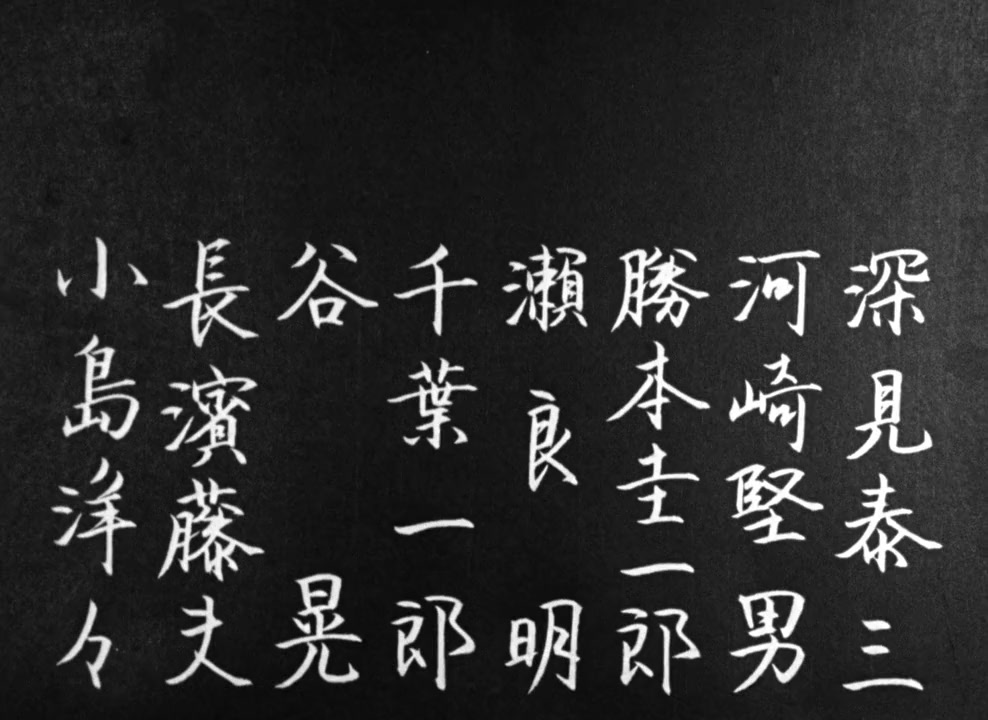 深見泰三
河崎堅男
勝本圭一郎
瀬良明
千葉一郎
谷晃
長濱藤夫
小島洋々